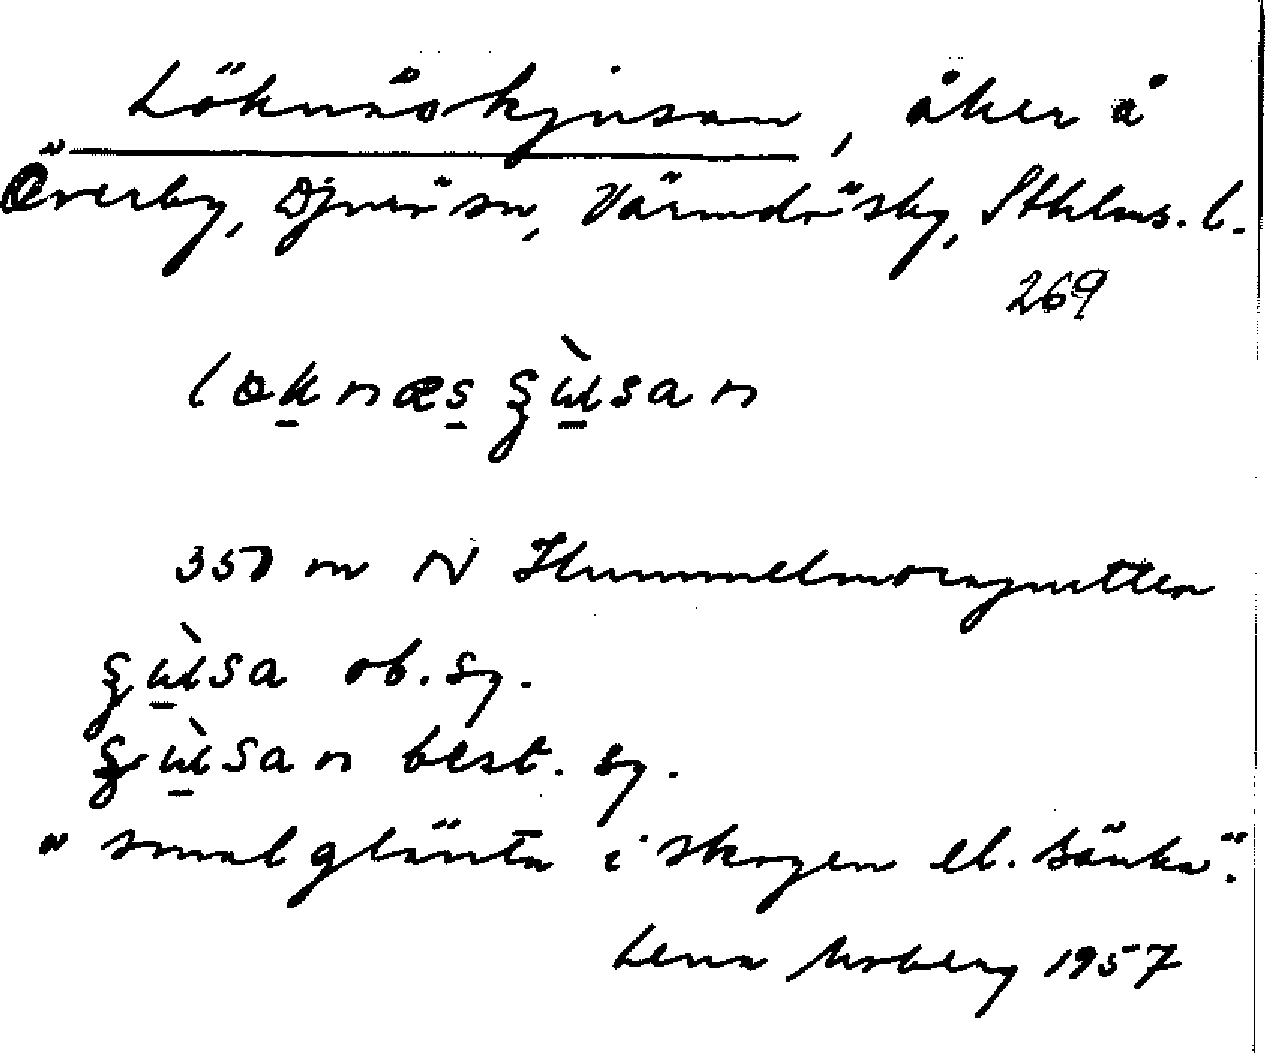 Löknäskjusan, åker å
Överby, Djurön, Värmdö sky, Sthlms. l.
269
løknæs ʂʉ̀san
350 m N Hummelmoragrutten
ʂʉ̀sa ob. sg.
ʂʉ̀san best. sg.
"smal glänta i skogen el. sänka".
Lena Moberg 1957